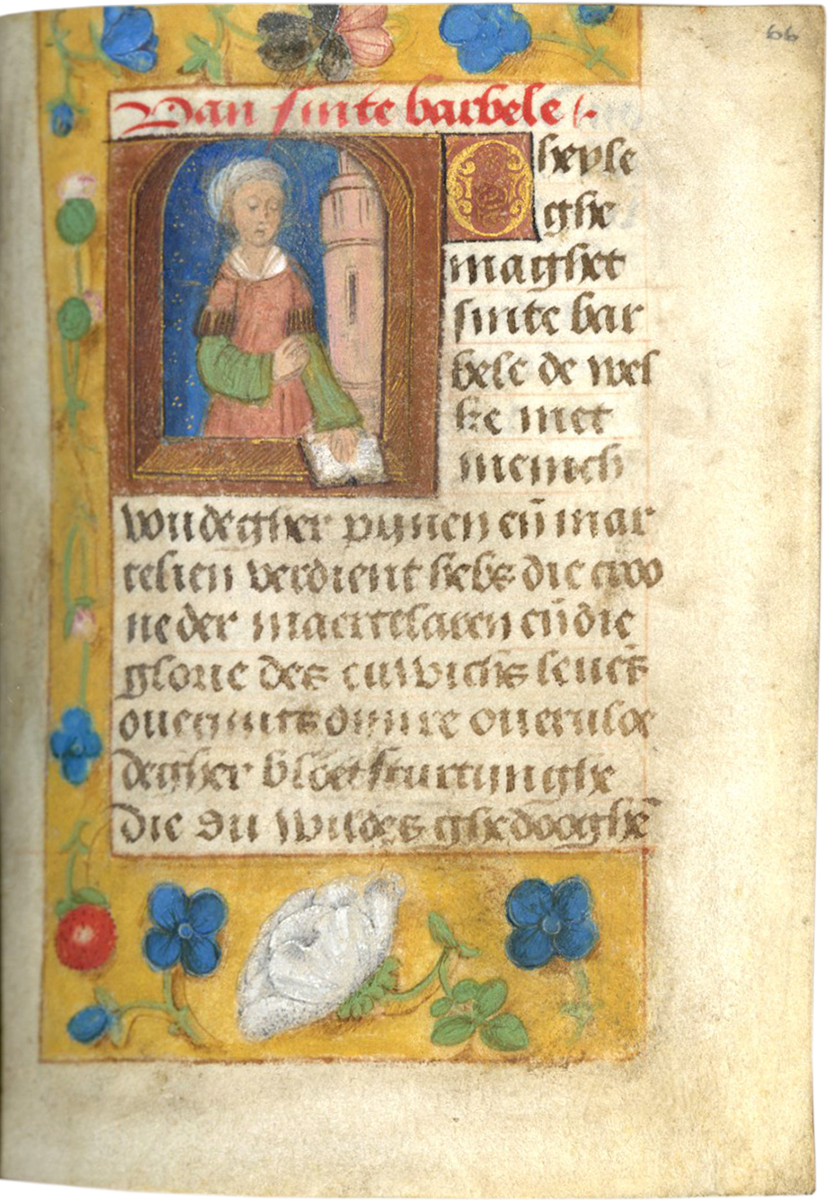 66
Van sinte barbele
O heyle
ghe
maghet
sinte bar
bele de wel
ke met
menich
vvudegher pynen eñ mar
telien verdient hebs die croo
ne der maertelaren eñ die
glorie des euwichs leuēs
ouermits dijnre oueruloe
degher bloetsturtijnghe
die du wildes ghedooghē